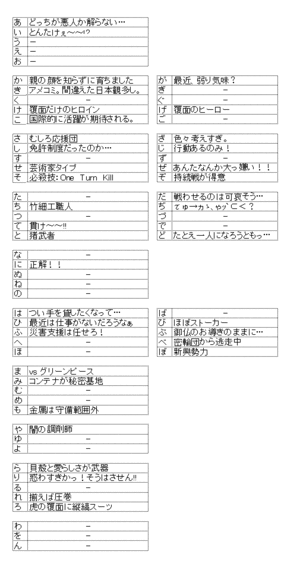 あ どっちが悪人か解らない…
い とんたけぇ～～!?
う －
え －
お －
か 親の顔を知らずに育ちました
が 最近、弱り気味？
き アメコミ。間違えた日本観多し。
ぎ －
く －
ぐ －
け 覆面だけのヒロイン
げ 覆面のヒーロー
こ 国際的に活躍が期待される。
ご －
さ むしろ応援団
ざ 色々考えすぎ。
し 免許制度だったのか…
じ 行動あるのみ！
す －
ず －
せ 芸術家タイプ
ぜ あんたなんか大っ嫌い！！
そ 必殺技：One Turn Kill
ぞ 持続戦が得意
た －
だ 戦わせるのは可哀そう…
ち 竹細工職人
ぢ
つ －
づ －
て 貫け～～!!
で －
と 猪武者
ど たとえ一人になろうともっ…
な －
に 正解！！
ぬ －
ね －
の －
は つい手を貸したくなって…
ば －
ひ 最近は仕事がないだろうなぁ
び ほぼストーカー
ふ 災害支援は任せろ！
ぶ 御仏のお導きのままに…
へ －
べ 密輸団から逃走中
ほ －
ぼ 新興勢力
ま vs グリーンピース
み コンテナが秘密基地
む －
め －
も 金属は守備範囲外
や 闇の調剤師
ゆ －
よ －
ら 貝殻と愛らしさが武器
り 惑わすきかっ！そうはさせん!!
る －
れ 揃えば圧巻
ろ 虎の覆面に縦縞スーツ
わ －
を －
ん －